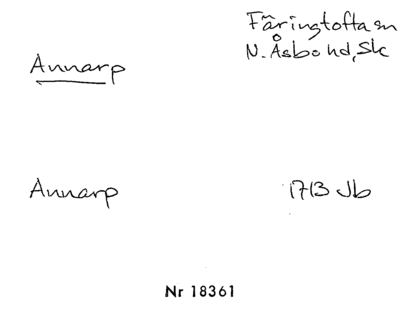 Färingtofta sn
N. Åsbo hd, Sk
Annarp
Annarp 1713 Jb
Nr 18361